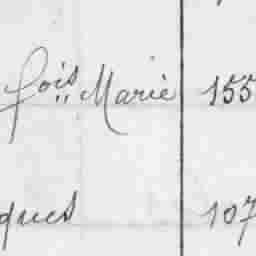 fois Marie 155
ques 107